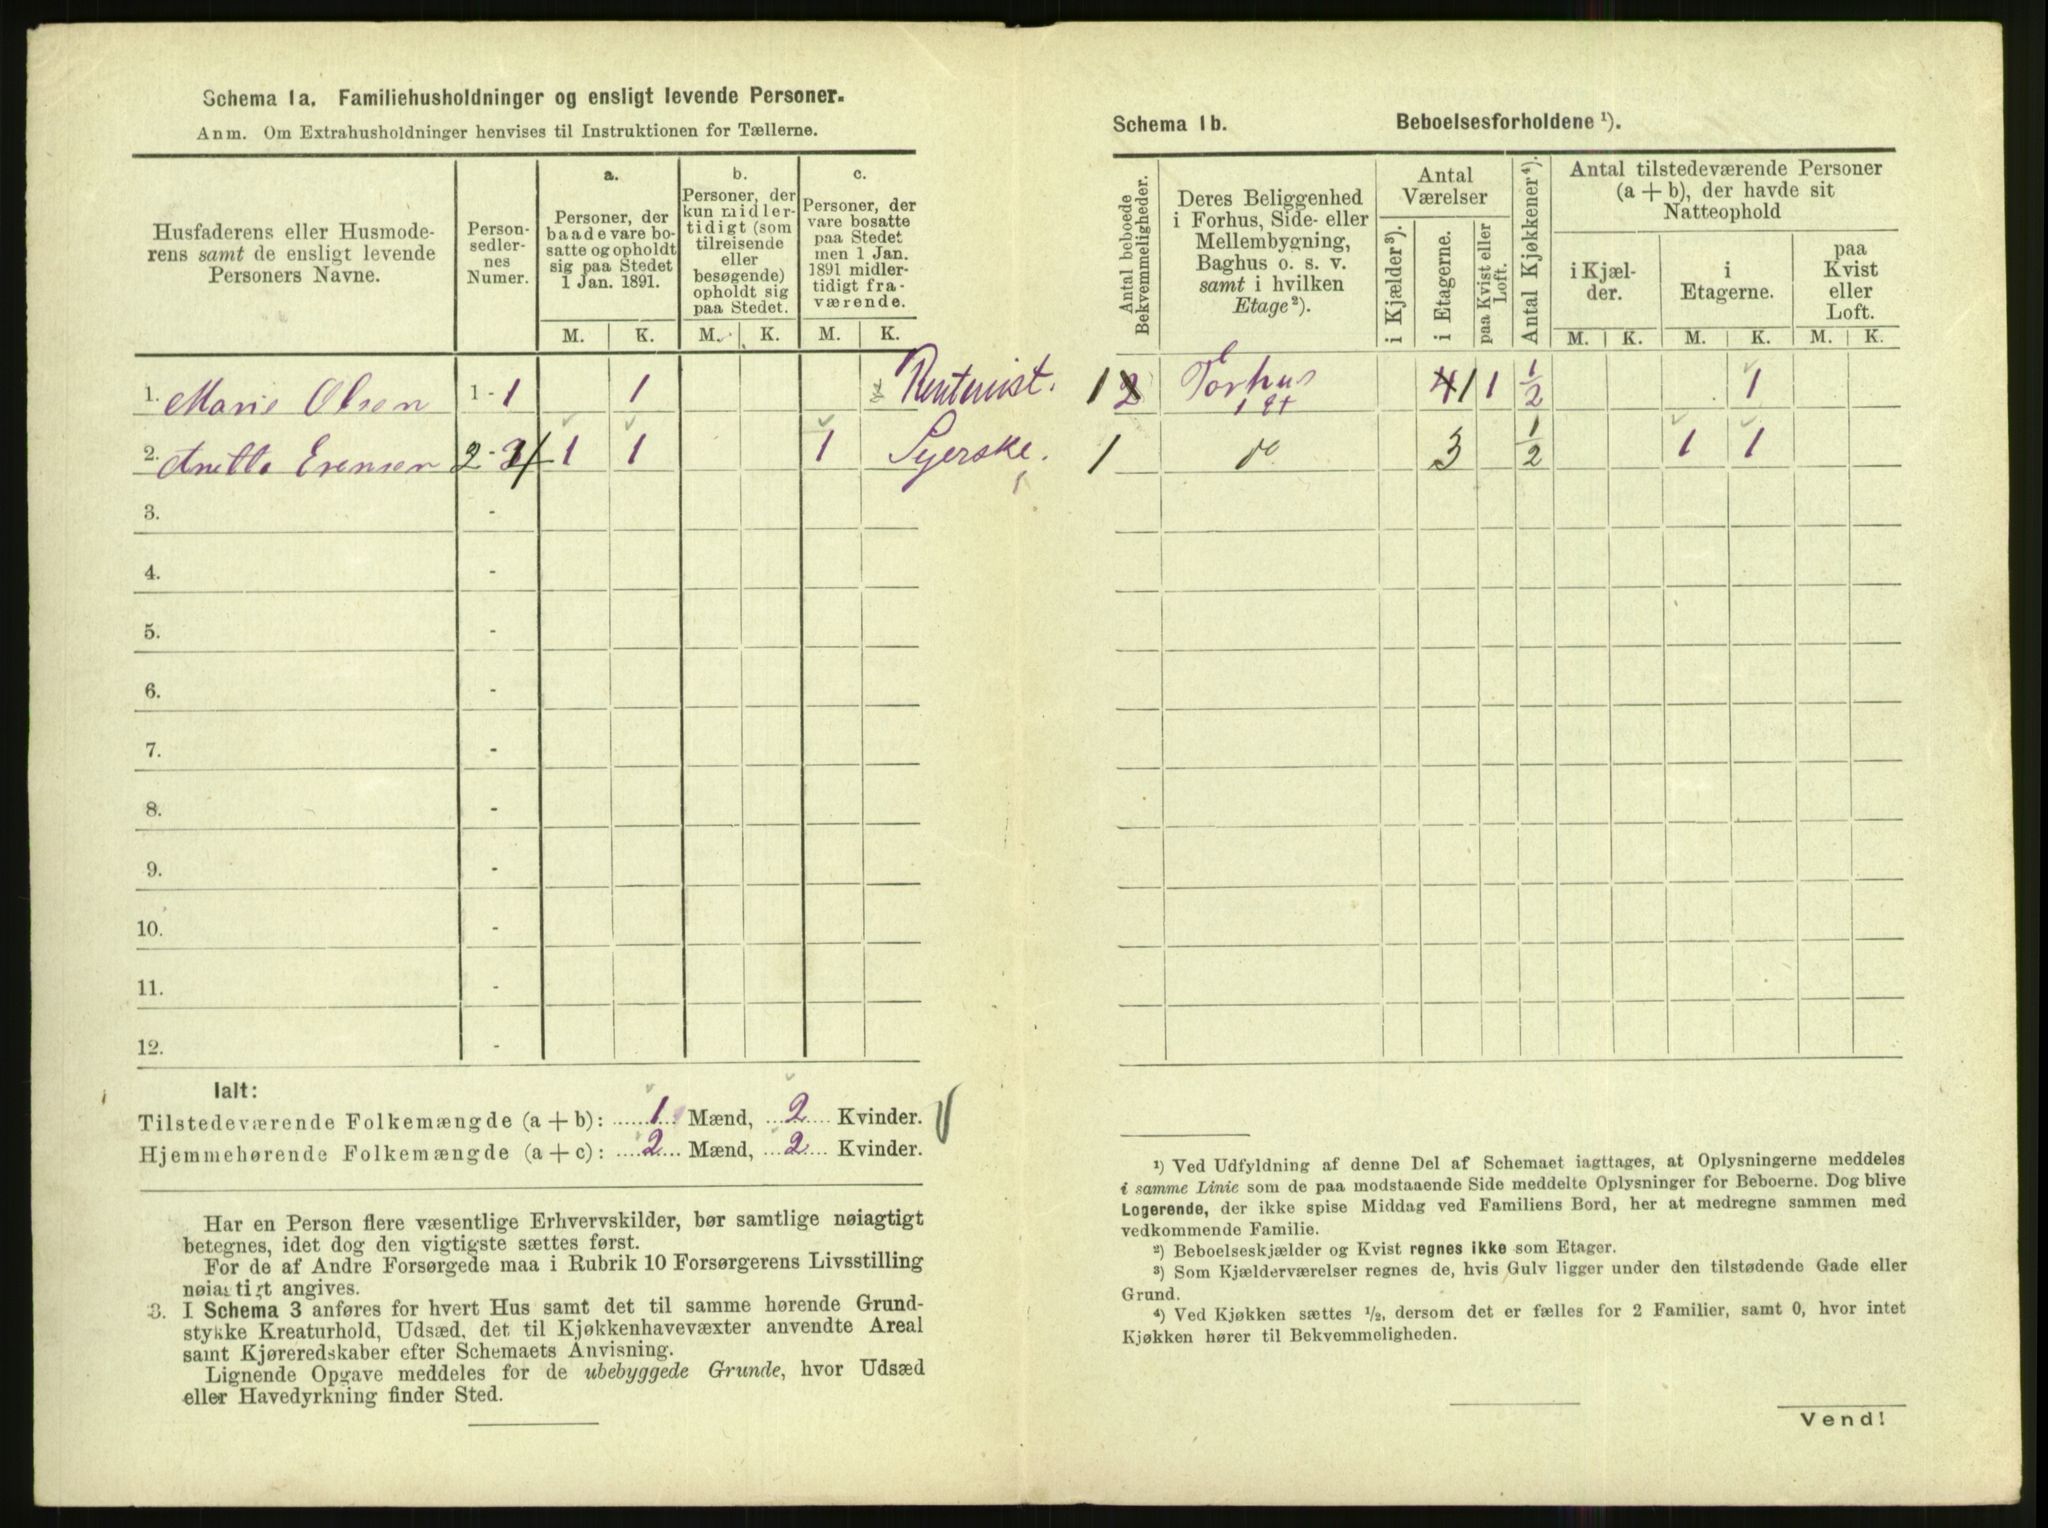 Schema 1a. Familiehusholdninger og ensligt levende Personer.
Anm. Om Extrahusholdninger henvises til Instruktionen for Tællerne.
Husfaderens eller Husmode-
rens samt de ensligt levende
Personers Navne.
Person-
sedler-
nes
Numer.
a.
Personer, der
baade vare bo-
satte og opholdt
sig paa Stedet
1 Jan. 1891.
b.
Personer, der
kun midler-
tidigt (som
tilreisende
eller
besøgende)
opholdt sig
paa Stedet.
c.
Personer, der
vare bosatte
paa Stedet
men 1 Jan.
1891 midler-
tidigt fra-
værende.
M. K. M. K. M. K.
1. Marie Olsen 1 - 1 1 Rentenist.
2. 2 - 4 1 1 1 Syerske.
3. -
4. -
5. -
6. -
7. -
8. -
9. -
10. -
11. -
12. -
Ialt:
Tilstedeværende Folkemængde (a + b): 1 Mænd, 2 Kvinder.
Hjemmehørende Folkemængde (a + c): 2 Mænd, 2 Kvinder.
Har en Person flere væsentlige Erhvervskilder, bør samtlige nøiagtigt
betegnes, idet dog den vigtigste sættes først.
For de af Andre Forsørgede maa i Rubrik 10 Forsørgerens Livsstilling
nøiagtigt angives.
3. I Schema 3 anføres for hvert Hus samt det til samme hørende Grund-
stykke Kreaturhold, Udsæd, det til Kjøkkenhavevæxter anvendte Areal
samt Kjøreredskaber efter Schemaets Anvisning.
Lignende Opgave meddeles for de ubebyggede Grunde, hvor Udsæd
eller Havedyrkning finder Sted.
Schema 1b. Beboelsesforholdene ¹).
Antal beboede
Bekvemmeligheder.
Deres Beliggenhed
i Forhus, Side- eller
Mellembygning,
Baghus o. s. v.
samt i hvilken
Etage²).
Antal
Værelser
i Kjælder³).
i Etagerne.
paa Kvist eller
Loft.
Antal Kjøkkener⁴).
Antal tilstedeværende Personer
(a + b), der havde sit
Natteophold
i Kjæl-
der.
i
Etagerne.
paa
Kvist
eller
Loft.
M. K. M. K. M. K.
1 2 Forhus 4 1 1 1/2 1
1 et
1 do 3 1/2 1 1
¹) Ved Udfyldning af denne Del af Schemaet iagttages, at Oplysningerne meddeles
i samme Linie som de paa modstaaende Side meddelte Oplysninger for Beboerne. Dog blive
Logerende, der ikke spise Middag ved Familiens Bord, her at medregne sammen med
vedkommende Familie.
²) Beboelseskjælder og Kvist regnes ikke som Etager.
³) Som Kjælderværelser regnes de, hvis Gulv ligger under den tilstødende Gade eller
Grund.
⁴) Ved Kjøkken sættes ½, dersom det er fælles for 2 Familier, samt 0, hvor intet
Kjøkken hører til Bekvemmeligheden.
Vend!